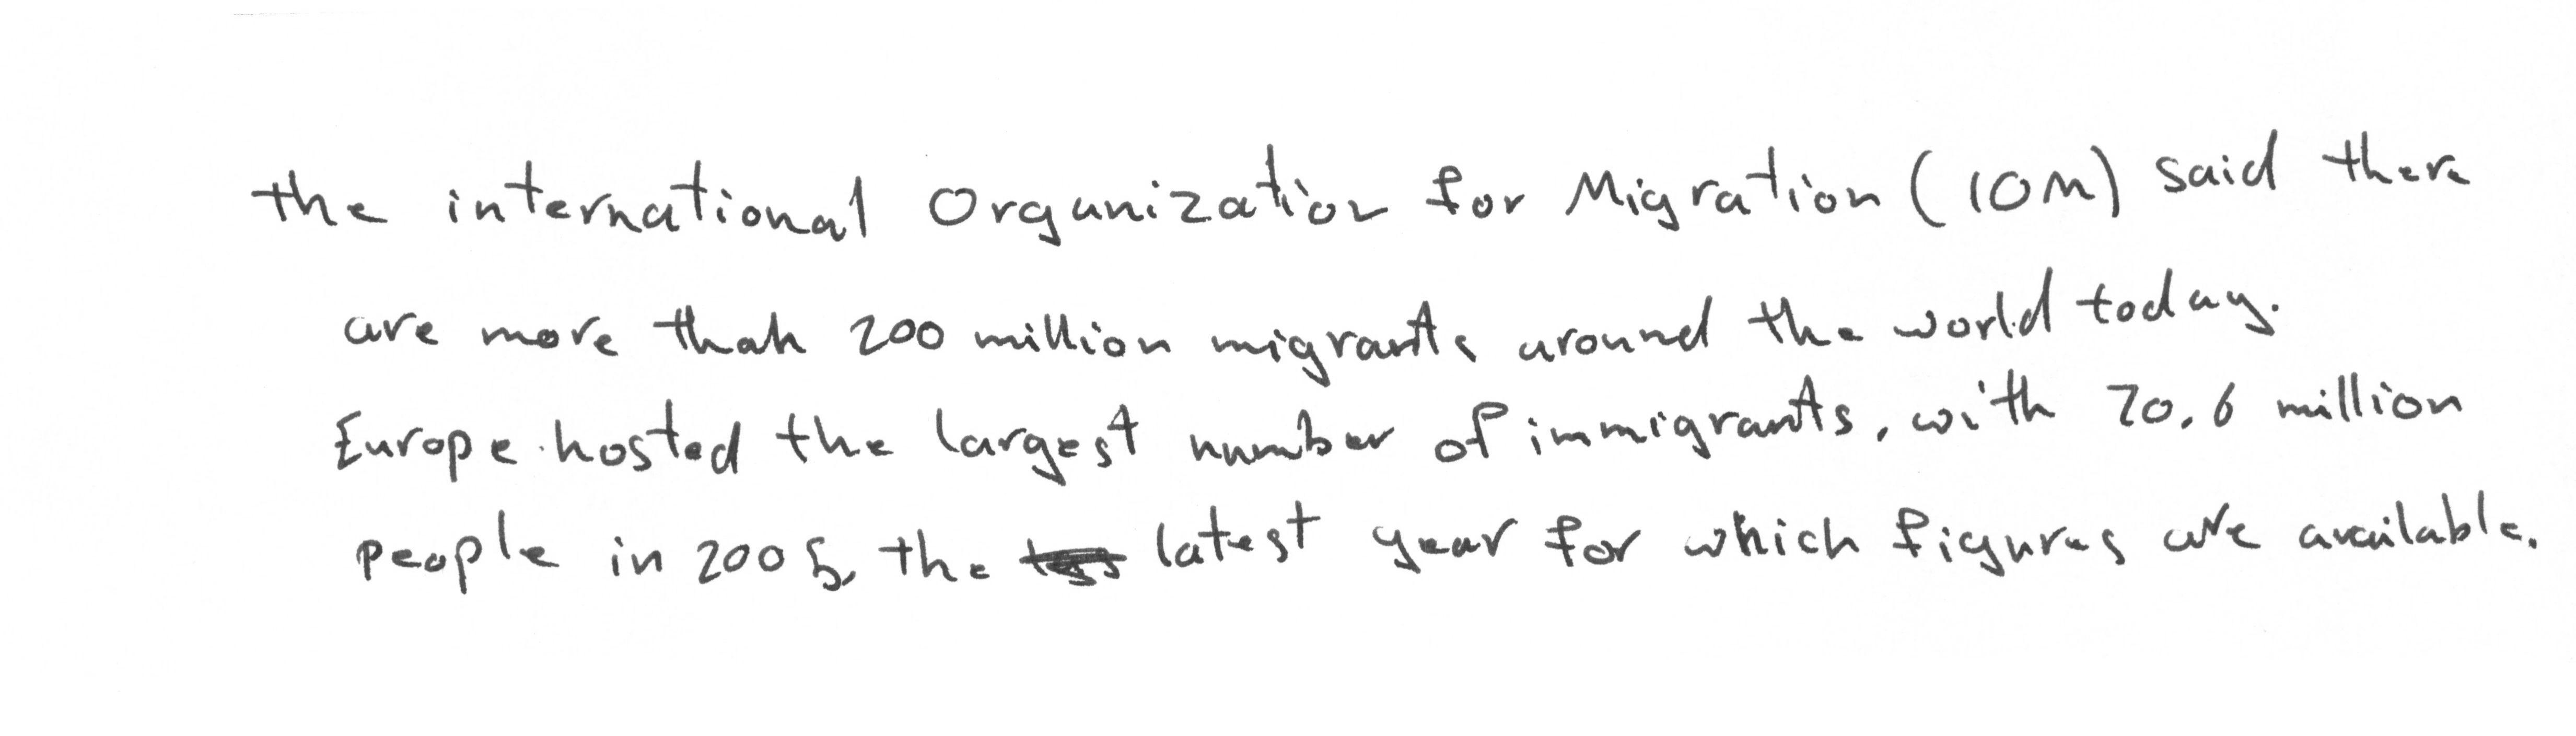 the international Organization for Migration (IOM) said there
are more than 200 million migrants around the world today.
Europe hosted the largest number of immigrants, with 70.6 million
people in 2005, the latest year for which figures are available.